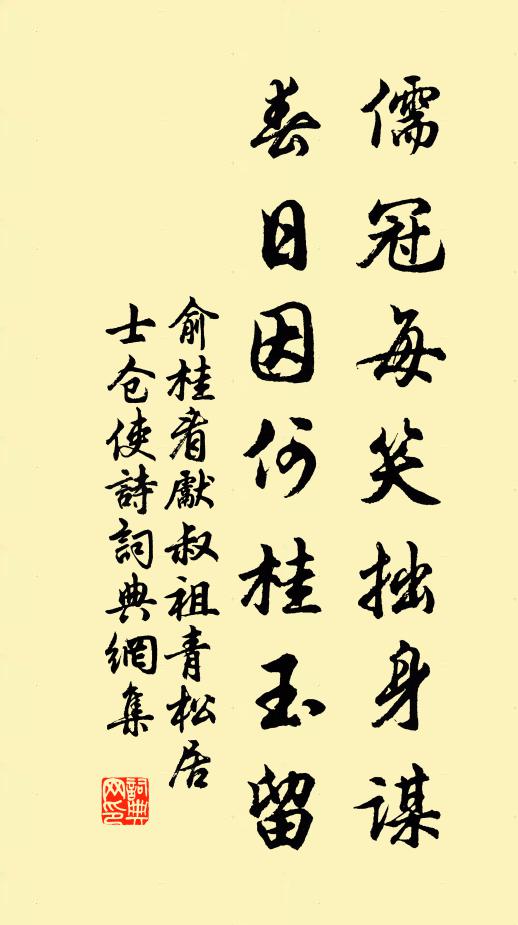 儒冠每笑拙身謀
春日因何桂玉留
俞桂肴獻叔祖青松居
士仓使詩詞典網集
詞典网印